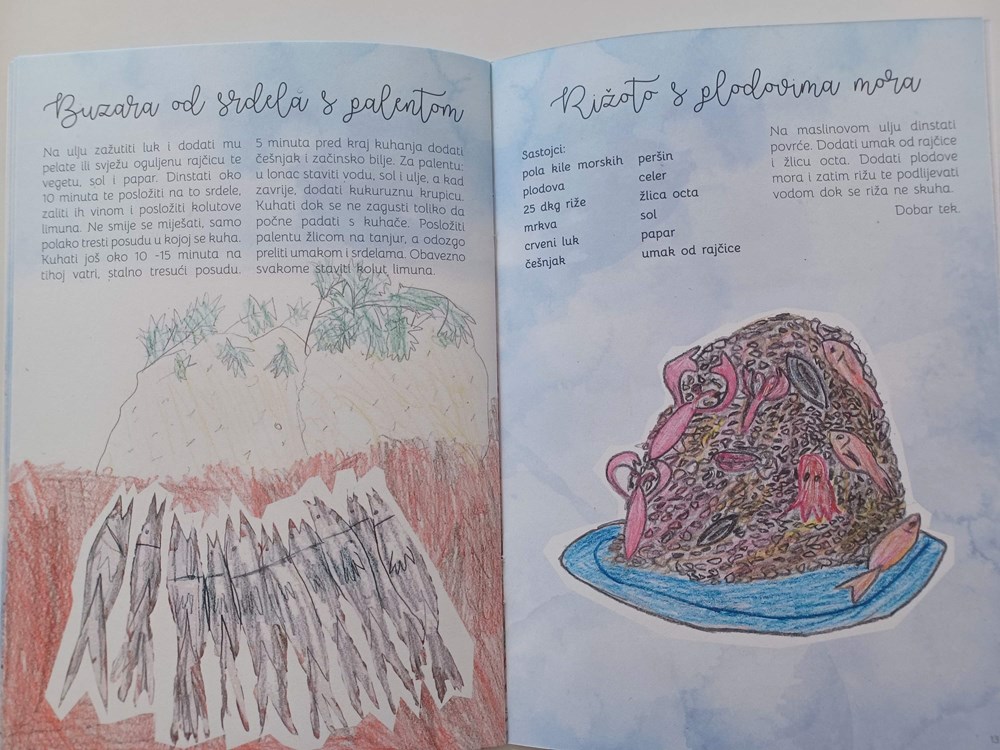 Buzara od srdela s palentom
Na ulju zažutiti luk i dodati mu
pelate ili svježu oguljenu rajčicu te
vegetu, sol i papar. Dinstati oko
10 minuta te posložiti na to srdele,
zaliti ih vinom i posložiti kolutove
limuna. Ne smije se miješati, samo
polako tresti posudu u kojoj se kuha.
Kuhati još oko 10 -15 minuta na
tihoj vatri, stalno tresući posudu.
5 minuta pred kraj kuhanja dodati
češnjak i začinsko bilje. Za palentu:
u lonac staviti vodu, sol i ulje, a kad
zavrije, dodati kukuruznu krupicu.
Kuhati dok se ne zagusti toliko da
počne padati s kuhače. Posložiti
palentu žlicom na tanjur, a odozgo
preliti umakom i srdelama. Obavezno
svakome staviti kolut limuna.
Rižoto s plodovima mora
Sastojci:
pola kile morskih
plodova
25 dkg riže
mrkva
crveni luk
češnjak
peršin
celer
žlica octa
sol
papar
umak od rajčice
Na maslinovom ulju dinstati
povrće. Dodati umak od rajčice
i žlicu octa. Dodati plodove
mora i zatim rižu te podlijevati
vodom dok se riža ne skuha.
Dobar tek.